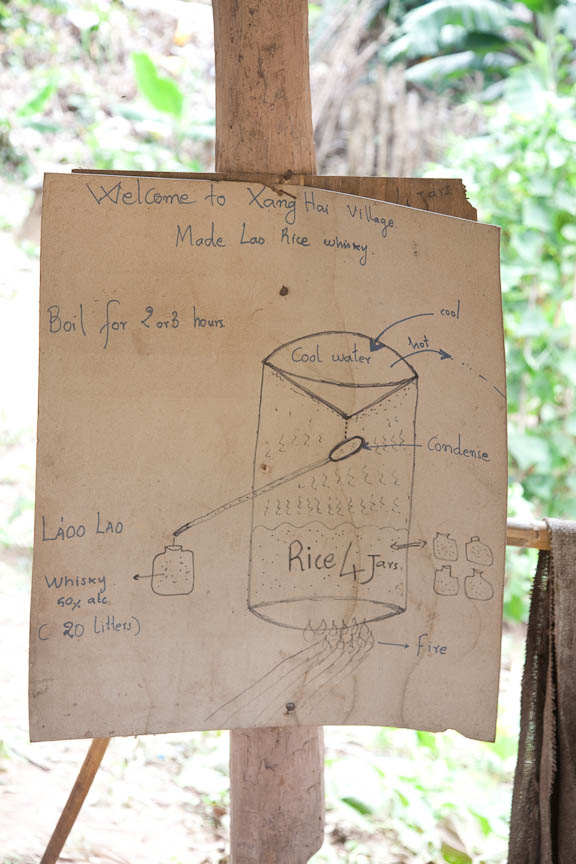 Welcome to Xang Hai Village.
Made Lao Rice whisky.
Jars
Boil for 2 or 3 hours
cool
hot
Cool water
Condense
LÁOO LAO
Rice 4 Jars.
Whisky
50% alc
( 20 Litters)
Fire